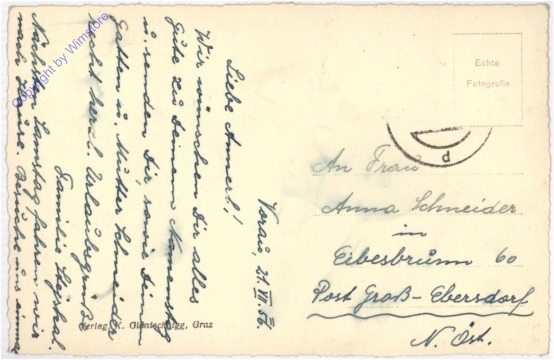 Vorau, 21. VII. 56.
Liebe Annerl!
Wir wünschen Dir alles
Gute zu Deinem Namenstag
u. senden Dir, sowie Deinem
Gatten u. Mutter Schneider
recht herzl. Urlaubsgrüße
Familie
Nächsten Samstag fahren wir
nach Hause. Besuche uns einmal
Echte
Fotografie
An Frau
Anna Schneider
in
Eibesbrunn 60
Post Groß-Ebersdorf
N. Öst.
Verlag K. Graz
Copyright by Winstore